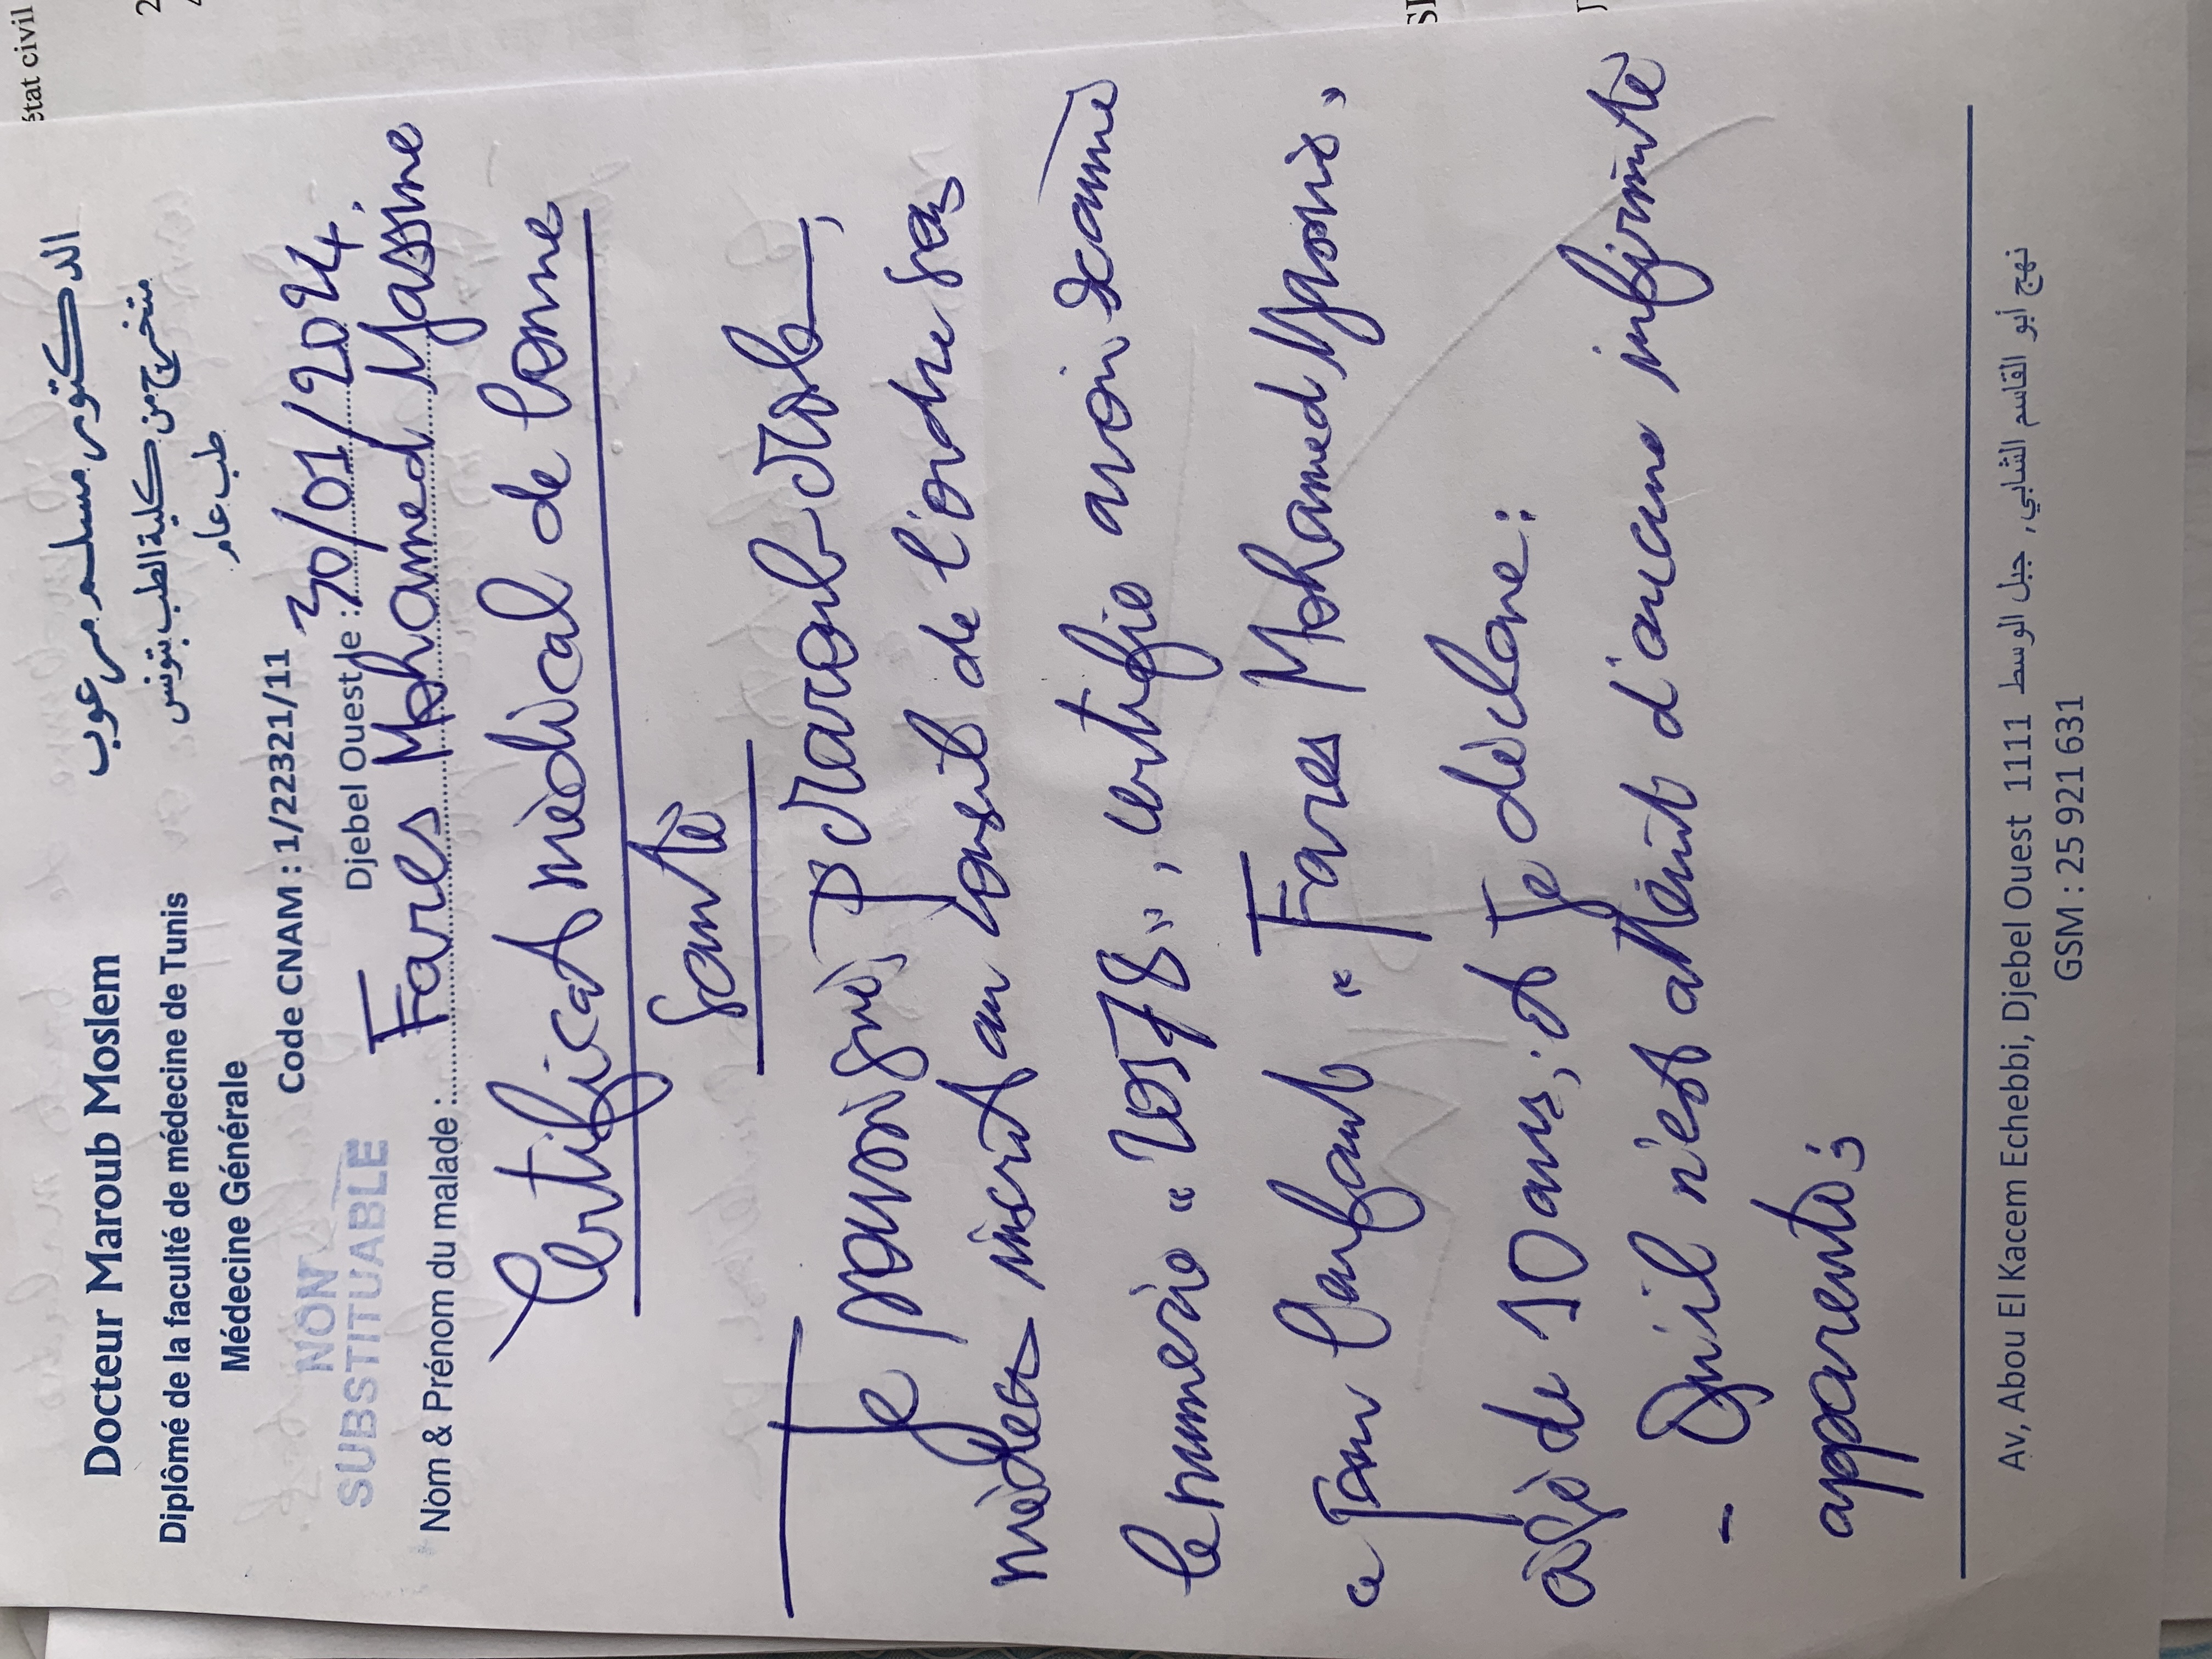 état civil
Docteur Maroub Moslem
الدكتور مسلم مرعوب
Diplômé de la faculté de médecine de Tunis
متخرج من كلية الطب بتونس
Médecine Générale
طب عام
Code CNAM : 1/22321/11
NON
SUBSTITUABLE
Djebel Ouest le : 30/01/2024
Nom & Prénom du malade : Fares Mohamed Yassine
Certificat médical de bonne
santé
Je soussigné, Dr Maroub Moslem,
médecin inscrit au conseil de l'ordre sous
le numério "20578", certifie avoir examiné
ce jour l'enfant " Fares Mohamed Yassine "
âgé de 10 ans, et je déclare :
- Qu'il n'est atteint d'aucune infirmité
apparente ;
Av, Abou El Kacem Echebbi, Djebel Ouest 1111 نهج أبو القاسم الشابي, جبل الوسط
GSM : 25 921 631